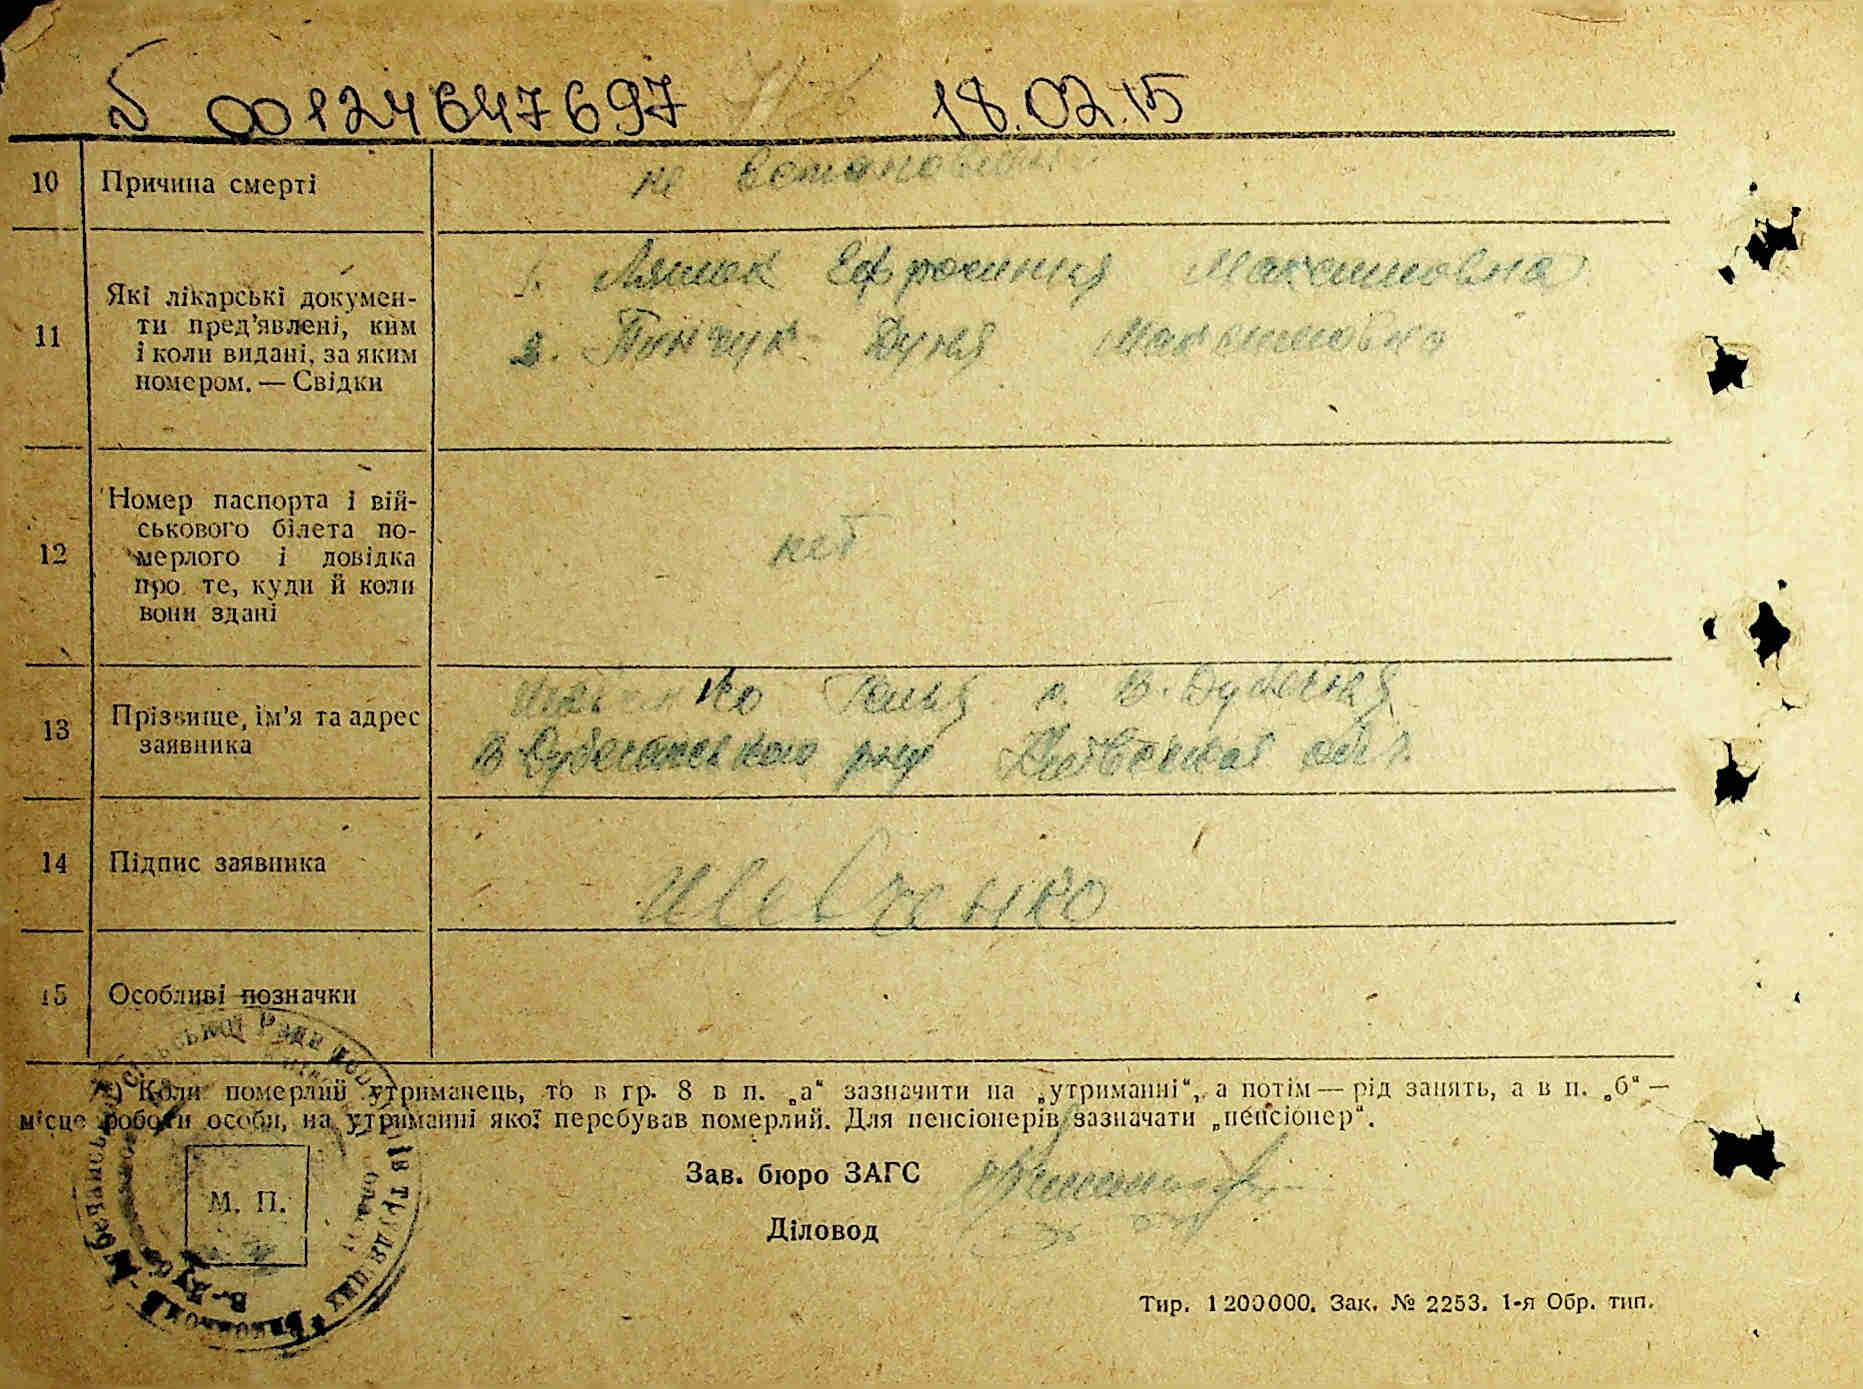 00124647697 18.02.15
10 Причина смерті
не
11 Які лікарські докумен-
ти пред'явлені, ким
і коли видані, за яким
номером. — Свідки
1. Ляшок Ефросиния Максимовна
2. Дуня Максимовна
12 Номер паспорта і вій-
ськового білета по-
мерлого і довідка
про те, куди й коли
вони здані
нет
13 Прізвище, ім'я та адрес
заявника
Галя В. Дубечня
обл.
14 Підпис заявника
Шевченко
15 Особливі позначки
*) Коли померлий утриманець, то в гр. 8 в п. „а“ зазначити на „утриманні“, а потім — рід занять, а в п. „б“ —
місце роботи особи, на утриманні якої перебував померлий. Для пенсіонерів зазначати „пенсіонер“.
Зав. бюро ЗАГС
М. П.
Діловод
Тир. 1200000. Зак. № 2253. 1-я Обр. тип.